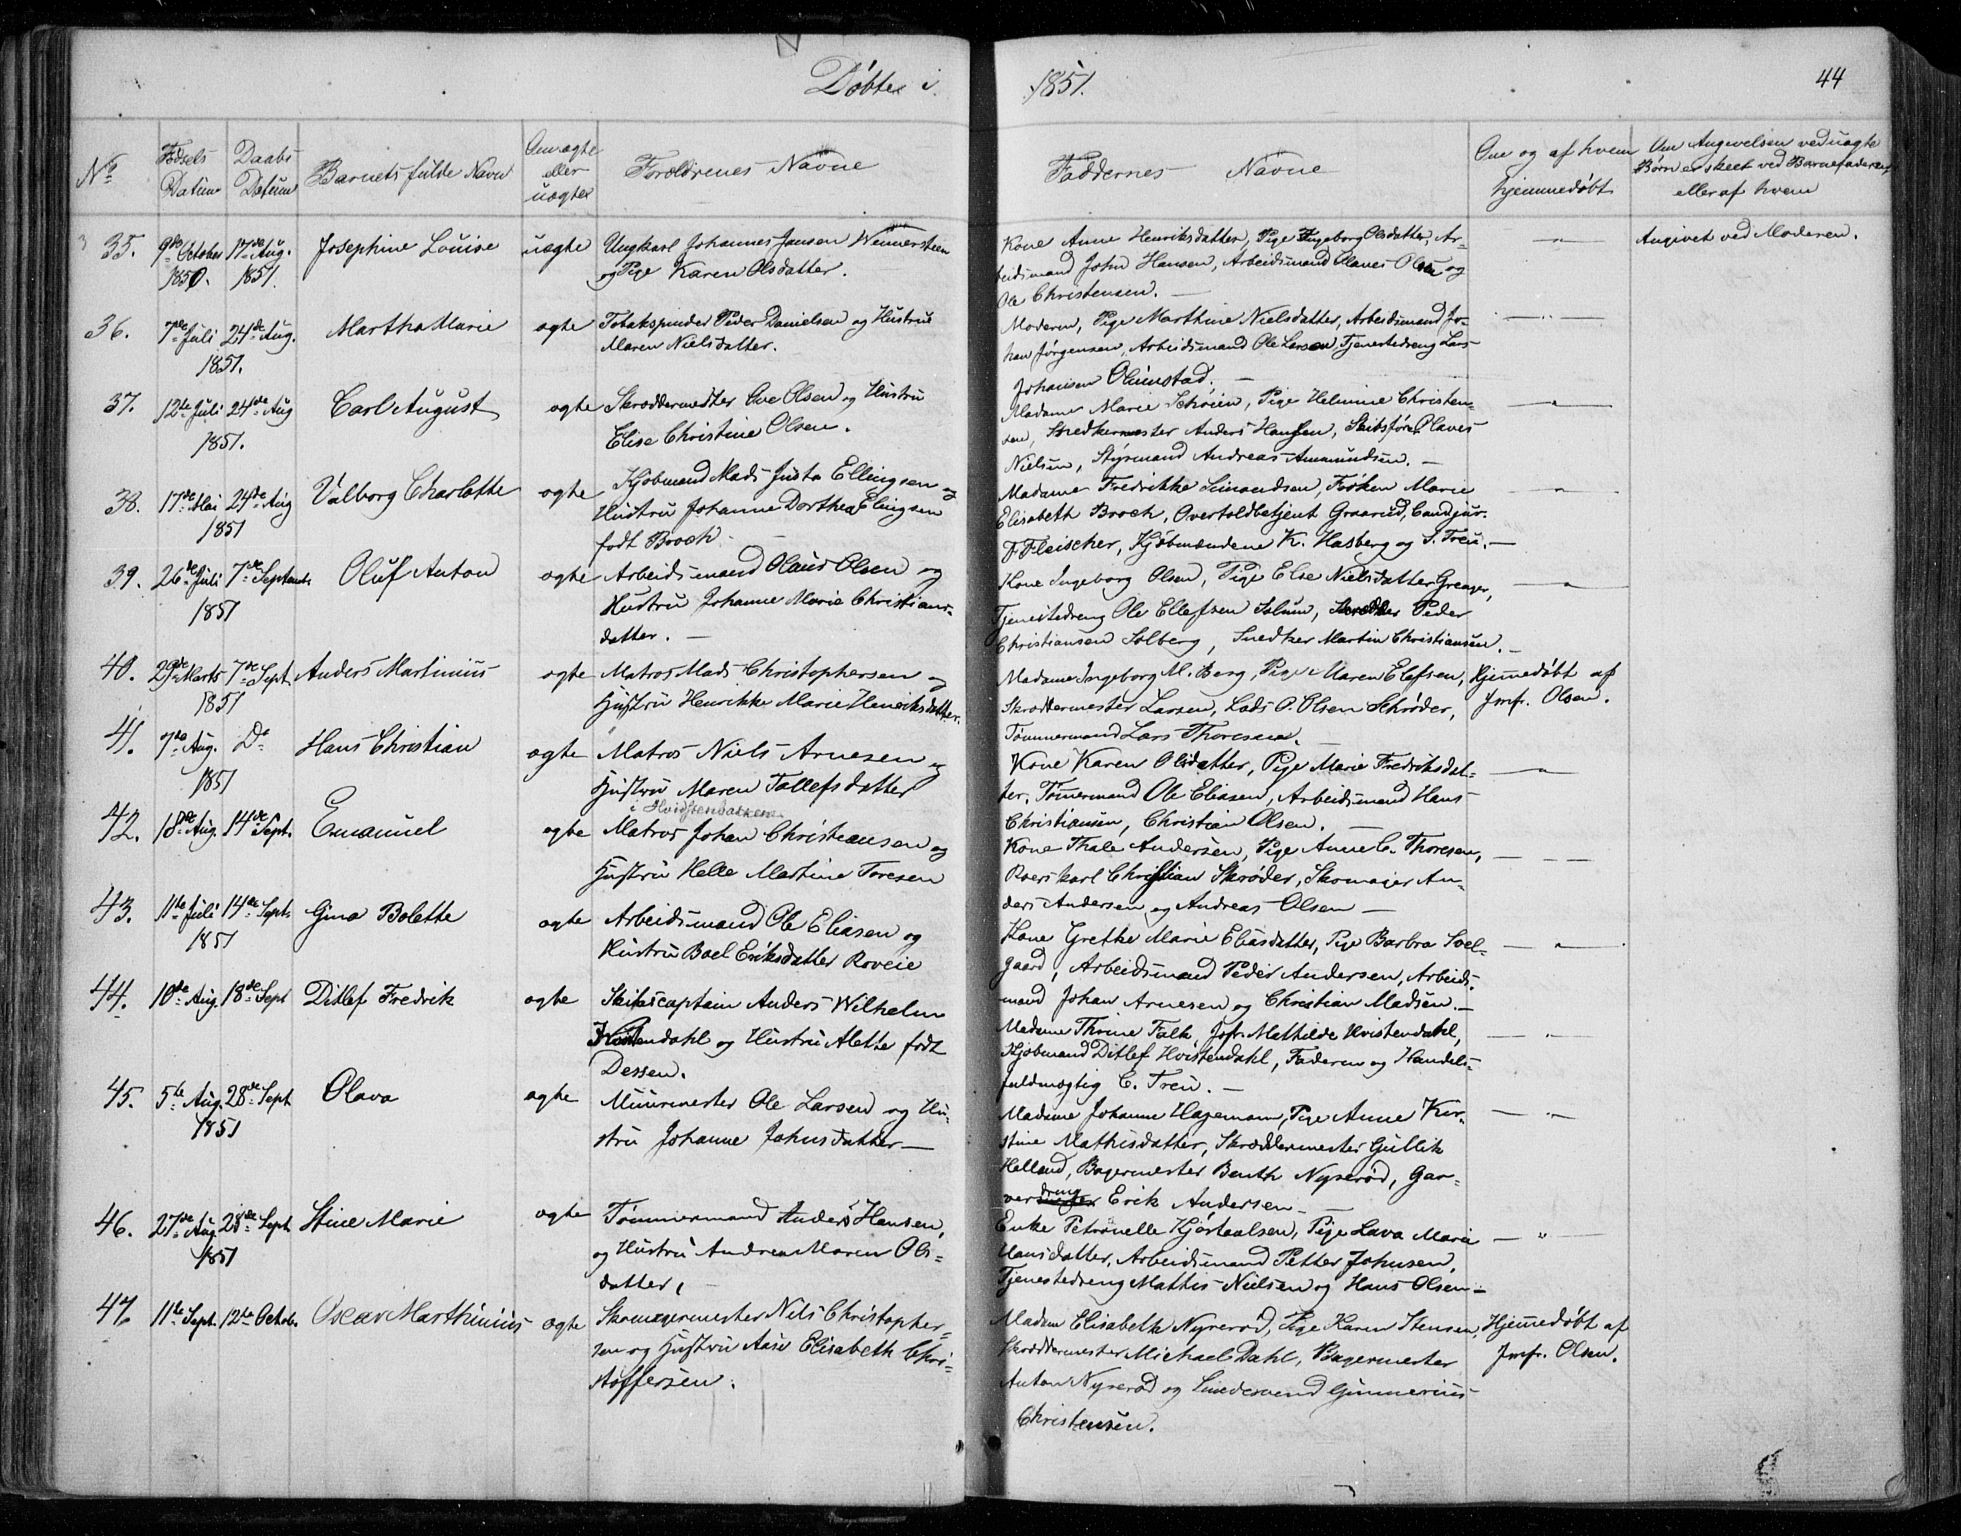 Døbte i
1851.
44
No
Fødsels Datum
Daabs Datum
Barnets fulde Navn
Om ægte eller uægte
Forældrenes Navne
Faddernes Navne
Om og af hvem hjemmedøbt
Om Angivelsen ved uægte Børn er skeet ved Barnefaderen eller af hvem
35. 9de October 1850. 17de Aug. 1851. Josephine Louise uægte Ungkarl Johannes Jansen Wennersteen
og Pige Karen Olsdatter.
Kone Anne Henriksdatter, Pige Ingeborg Olsdatter, Ar-
beidsmand John Hansen, Arbeidsmand Olaves Olsen og
Ole Christensen. —
— " — Angivet ved Moderen.
36. 7de Juli 24de Aug. 1851. Martha Marie ægte Tobakspinder Peder Danielsen og Hustrue
Maren Nielsdatter.
Moderen, Pige Marthine Nielsdatter, Arbeidsmand Jo-
han Jørgensen, Arbeidsmand Ole Larsen, Tjenestedreng Lars
Johansen Olimstad. —
— " —
37. 12te Juli 24de Aug 1851. Carl August ægte Skræddermester Ove Olsen og Hustru
Elise Christine Olsen.
Madame Marie Schöien, Pige Helmine Christen-
sen, Snedkermester Anders Hansen, Skibsfører Olaves
Nielsen, Styrmand Andreas Ammundsen. —
— " —
38. 17de Mai 24de Aug 1851 Valborg Charlotte ægte Kjøbmand Mads Juda Ellingsen og
Hustru Johanne Dorthea Ellingsen
født Broch. —
Madame Fredrikke Simondsen, Frøken Marie
Elisabeth Broch, Overtoldbetjent Graarud, Cand. jur.
F. Fleischer, Kjøbmændene K. Hasberg og S. Treu. —
— " —
39. 26de Juli 7de Septemb. 1851 Oluf Anton ægte Arbeidsmand Olaus Olsen og
Hustru Johanne Marie Christians-
datter. —
Kone Ingeborg Olsen, Pige Else Nielsdatter Greager,
Tjenestedreng Ole Ellefsen Islum, Skrædder Peder
Christiansen Solberg, Snedker Martin Christiansen. —
— " —
40. 29de Marts 7de Sept. 1851 Anders Martinius ægte Matros Mads Christophersen og
Hustru Henrikke Marie Henriksdatter.
Madame Ingeborg M. Berg, Pige Maren Elefsen,
Skræddermester Larsen, Lods P. Olsen Schrøder,
Tømmermand Lars Thoresen. —
Hjemedøbt af
Jmfr. Olsen.
41. 7de Aug. Do 1851 Hans Christian ægte Matros Niels Arnesen og
Hustru Maren Tollefsdatter
Kone Karen Olsdatter, Pige Marie Fredriksdat-
ter, Tømermand Ole Eliasen, Arbeidsmand Hans
Christiansen, Christian Olsen. —
— " —
i Hvidstenbakken
42. 18de Aug. 14de Sept. Emanuel ægte Matros Johan Christiansen og
Hustru Helle Martine Toresen
Kone Thale Andersen, Pige Anne C. Thoresen,
Roerskarl Christian Skrøder, Skomager An-
ders Andersen og Andreas Olsen —
— " —
43. 11te Juli 14de Sept. 1851 Gina Bolette ægte Arbeidsmand Ole Eliasen og
Hustru Boel Eriksdatter Roveie
Kone Grethe Marie Eliasdatter, Pige Barbra Soel-
gaard, Arbeidsmand Peder Andersen, Arbeids-
mand Johan Arnesen og Christian Madsen. —
— " —
44. 10de Aug. 18de Sept Ditlef Fredrik ægte Skibscaptain Anders Wilhelm
Hvistendahl og Hustru Alette født
Dessen.
Madame Thrine Falk, Jofr. Mathilde Hvistendahl,
Kjøbmand Ditlef Hvistendahl, Faderen og Handels-
fuldmægtig C. Treu. —
— " —
45. 5te Aug. 28de Sept 1851 Olava ægte Muurmester Ole Larsen og Hu-
stru Johanne Johnsdatter —
Madame Johanne Hagemann, Pige Anne Kir-
stine Mathisdatter, Skræddermester Gullik
Helland, Bagermester Benth Nyserød, Gar-
verdreng Erik Andersen —
— " —
46. 27de Aug. 28de Sept 1851 Stine Marie ægte Tømmermand Anders Hansen,
og Hustru Andrea Maren Ols-
datter, —
Enke Petronelle Kjørtaulsen, Pige Lava Marie
Hansdatter, Arbeidsmand Petter Johnsen,
Tjenestedreng Mathis Nielsen og Hans Olsen —
— " —
47. 11te Sept. 12te Octob. Oscar Marthinius ægte Skomagermester Nils Christopher-
sen og Hustru Aase Elisabeth Chri-
stoffersen.
Madam Elisabeth Nyrerød, Pige Karen Stensen,
Skræddermester Michael Dahl, Bagermester
Anton Nyserød og Smedesvend Gunnerius
Christensen.
Hjemedøbt af
Jmfr. Olsen.